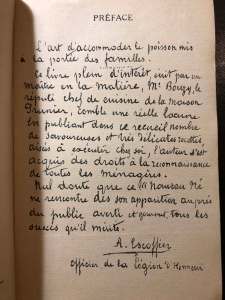 PRÉFACE
L'art d'accommoder le poisson mis
à la portée des familles.
Ce livre plein d'intérêt, écrit par un
maître en la matière, Mr Bouzy, le
réputé chef de cuisine de la Maison
Prunier, comble une réelle lacune
en publiant dans ce recueil nombre
de savoureuses et très délicates recettes,
aisées à exécuter chez soi, l'auteur s'est
acquis des droits à la reconnaissance
de toutes les ménagères.
Nul doute que ce Nouveau Né
ne rencontre dès son apparition auprès
du public averti et gourmet, tous les
succès qu'il mérite.
A. Escoffier
Officier de la légion d'Honneur